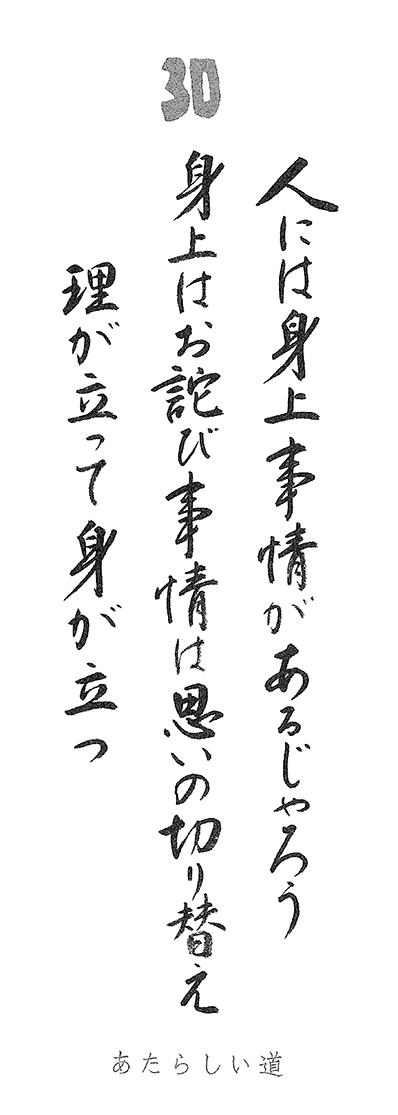 30
人には身上事情があるじゃろう
身上はお詫び事情は思いの切り替え
理が立って身が立つ
あたらしい道